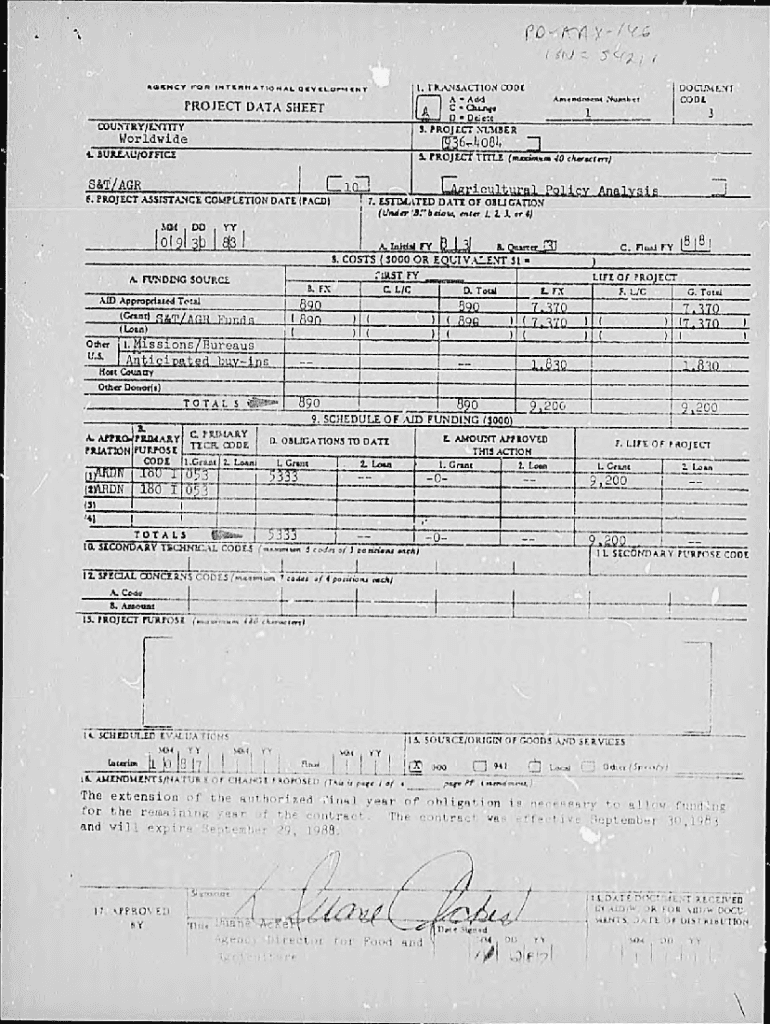 PD-AAX-146
AGENCY FOR INTERNATIONAL DEVELOPMENT
PROJECT DATA SHEET
1. TRANSACTION CODE
A
A = Add
C = Change
D = Delete
Amendment Number
1
DOCUMENT CODE
3
COUNTRY/ENTITY
Worldwide
3. PROJECT NUMBER
936-4084
4. BUREAU/OFFICE
S&T/AGR
10
5. PROJECT TITLE (maximum 40 characters)
Agricultural Policy Analysis
6. PROJECT ASSISTANCE COMPLETION DATE (PACD)
MM DD YY
7. ESTIMATED DATE OF OBLIGATION
(Under "B." below, enter 1, 2, 3, or 4)
A. Initial FY 8 3 B. Quarter 3 C. Final FY 8 8
8. COSTS ($000 OR EQUIVALENT $1 = )
A. FUNDING SOURCE FIRST FY LIFE OF PROJECT
B. FX C. L/C D. Total E. FX F. L/C G. Total
AID Appropriated Total 890 890 7,370 7,370
(Grant) S&T/AGR Funds ( 890 ) ( ) ( 890 ) ( 7,370 ) ( ) ( 7,370 )
(Loan) ( ) ( ) ( ) ( ) ( ) ( )
Other U.S. 1. Missions/Bureaus
Anticipated buy-ins -- -- 1,830 1,830
Host Country
Other Donor(s)
TOTALS 890 890 9,200 9,200
9. SCHEDULE OF AID FUNDING ($000)
A. APPROPRIATION B. PRIMARY PURPOSE CODE C. PRIMARY TECH. CODE D. OBLIGATIONS TO DATE E. AMOUNT APPROVED THIS ACTION F. LIFE OF PROJECT
1. Grant 2. Loan 1. Grant 2. Loan 1. Grant 2. Loan 1. Grant 2. Loan
(1) ARDN 180 I 053 5333 -- -0- -- 9,200 --
(2) ARDN 180 I 053
(3)
(4)
TOTALS 5333 -- -0- -- 9,200 --
10. SECONDARY TECHNICAL CODES (maximum 6 codes of 3 positions each)
11. SECONDARY PURPOSE CODE
12. SPECIAL CONCERNS CODES (maximum 7 codes of 4 positions each)
A. Code
B. Amount
13. PROJECT PURPOSE (maximum 480 characters)
14. SCHEDULED EVALUATIONS
MM YY MM YY MM YY
Interim 1 0 8 7 Final
15. SOURCE/ORIGIN OF GOODS AND SERVICES
X 000 941 Local Other (Specify)
16. AMENDMENTS/NATURE OF CHANGE PROPOSED (This is page 1 of a page PP Amendment.)
The extension of the authorized final year of obligation is necessary to allow funding
for the remaining year of the contract. The contract was effective September 30,1983
and will expire September 29, 1988.
17. APPROVED BY
Signature
Duane Acker
Title Duane Acker
Agency Director for Food and
Agriculture
Date Signed
MM DD YY
18. DATE DOCUMENT RECEIVED
IN AID/W, OR FOR AID/W DOCUMENTS, DATE OF DISTRIBUTION
MM DD YY